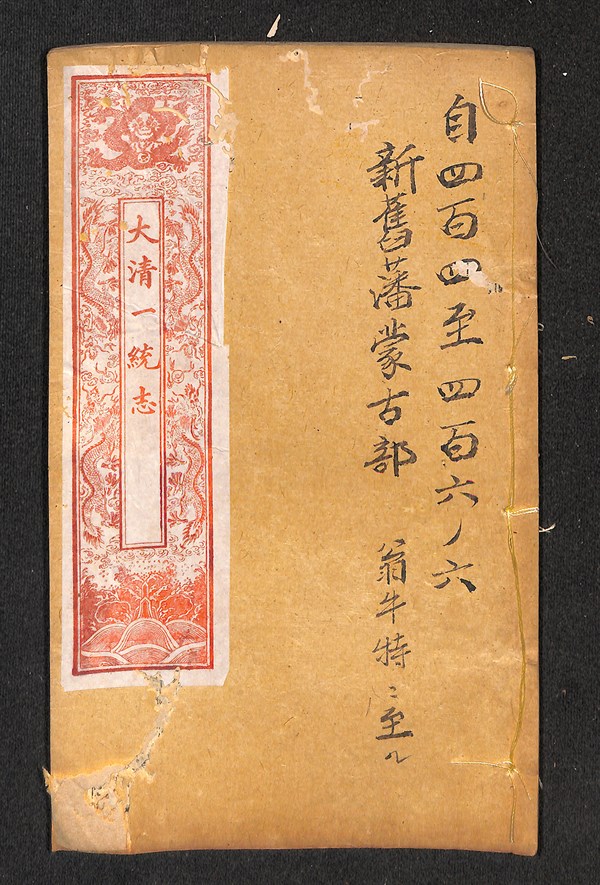 自四百四至四百六ノ六
新舊藩蒙古部 翁牛特ニ至ル
大清一統志